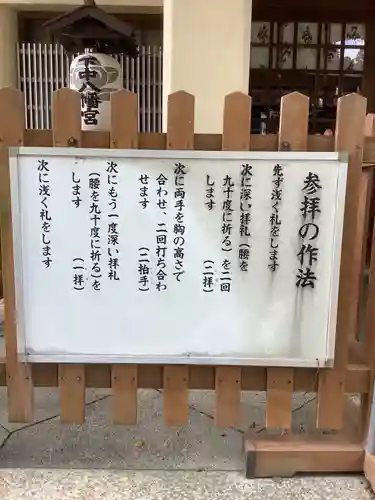 参拝の作法
先ず浅く礼をします
次に深い拝礼(腰を
九十度に折る)を二回
します　(二礼)
次に両手を胸の高さで
合わせ、二回打ち合わ
せます　(二拍手)
次にもう一度深い拝礼
(腰を九十度に折る)を
します　(一拝)
次に浅く礼をします
中八幡宮